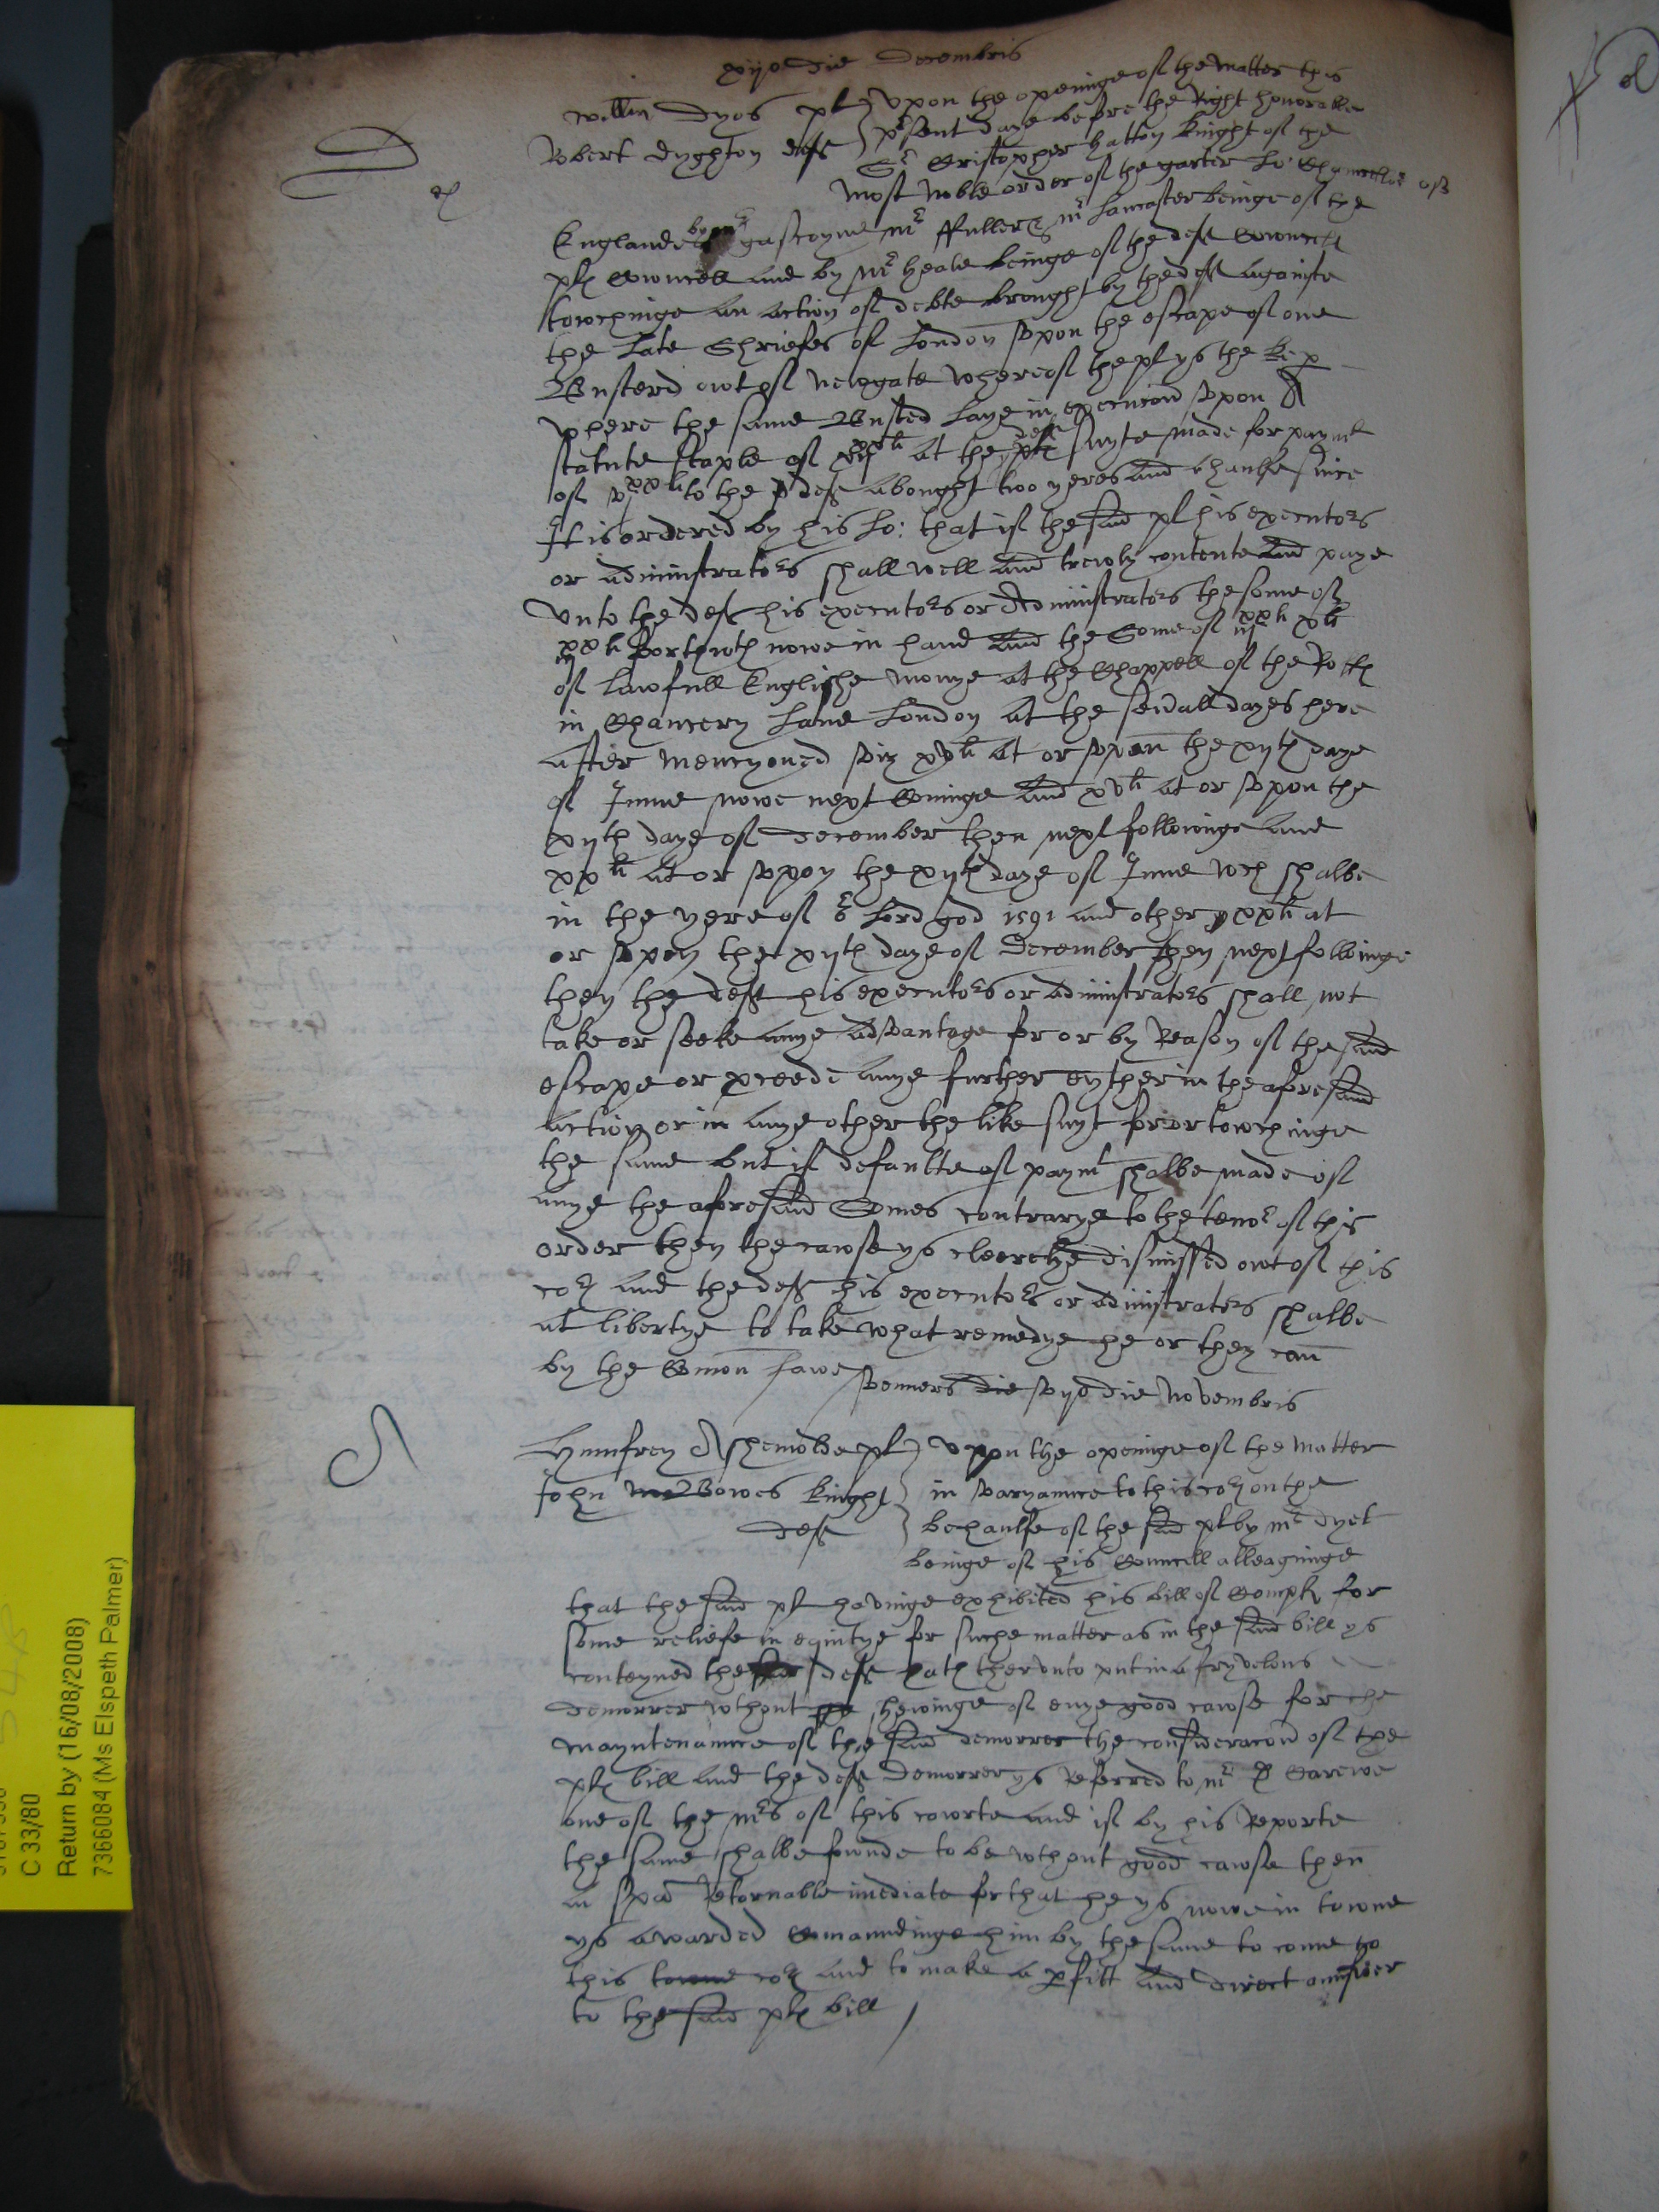 xijo die Decembris
Willm Dyos pl } Upon the openinge of the matter this
Robert Dyghton deft } pʳsent daye before the Right honorable
Sʳ Cristopher Hatton knight of the
most noble order of the garter Lo: Chancellor of
Englande by mʳ gascoyne mʳ ffuller & mʳ Lancaster beinge of the
pltes Councell and by mʳ Heale beinge of the deftes Councell
towchinge an action of debte brought by the deft againste
the late Shriefes of London upon the escape of one
Busterd owt of newgate whereof the pl ys the keper
where the same Busted laye in execucion upon A
statute staple of at the deftes suyte made for paymt
of to the deft abought two yeres and a haulfe since
It is ordered by his Lo: that if the said pl his executoʳs
or administratoʳs shall well and trewly contente and paye
unto the deft his executoʳs or Administratoʳs the some of
xxˡⁱ forthwth nowe in hand and the Some of iijˣˣˡⁱ xˡⁱ
of lawfull Englishe monye at the Chappell of the Rolles
in Chancery Lane London at the sevrall dayes here
after mencyoned viz xvˡⁱ at or upon the xijth daye
of June nowe next Cominge and xvˡⁱ at or upon the
xijth daye of December then next followinge and
xxˡⁱ at or upon the xijth daye of June wch shalbe
in the yere of oʳ Lord god 1591 and other xxˡⁱ at
or upon the xijth daye of December then next followinge
then the deft his executoʳs or administratoʳs shall not
take or seeke anye advantage for or by Reason of the said
escape or pceede anye further eyther in the aforesaid
action or in anye other the like suyt for or towchinge
the same but if defaulte of paymt shalbe made of
anye the aforesaid Somes contrarye to the tenoʳ of this
order then the cawse ys cleerelye dismissed owt of this
coʳt and the deft his executoʳs or administratoʳs shalbe
at libertye to take what remedye he or they can
by the Comon lawe
Veneris die vijo die Novembris
Humfrey pl } Uppon the openinge of the matter
John Bowes knight } in varyaunce to this coʳt on the
deft } behaulfe of the said pl by mʳ dyet
beinge of his Councell alleaginge
that the said pl havinge exhibited his bill of Complt for
some reliefe in equitye for suche matter as in the said bill ys
conteyned the deft hath therunto put in a fryvelous
demorrer wthout shewinge of enye good cawse for the
mayntenaunce of the said demorrer the consideracon of the
pltes bill and the deftes Demorrer ys Referred to mʳ D Carewe
one of the mʳs of this cowrte and if by his Reporte
the same shalbe fownde to be wthout good cawse then
a spa Retornable imediate for that he ys nowe in towne
ys awarded Comaundinge him by the same to come to
this towne coʳt and to make a pfitt and direct answer
to the said pltes bill
C 33/80
Return by (16/08/2008)
7366084 (Ms Elspeth Palmer)